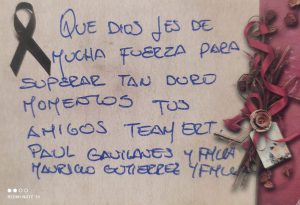 QUE DIOS LES DE
MUCHA FUERZA PARA
SUPERAR TAN DURO
MOMENTOS TUS
AMIGOS TEAM ERT
PAUL GAVILANES Y FMLIA
MAURICIO GUTIERREZ Y FMLIA